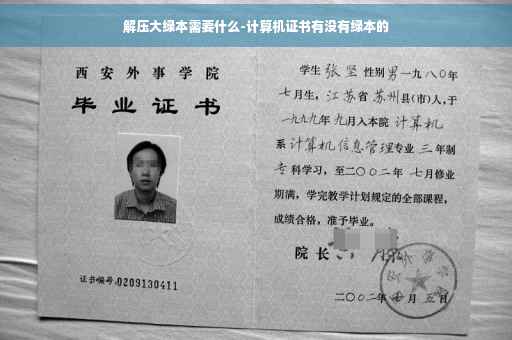 解压大绿本需要什么-计算机证书有没有绿本的
西安外事学院
毕业证书
证书编号:0209130411
学生张坚性别男一九八〇年
七月生，江苏省苏州县(市)人,于
一九九九年九月入本院计算机
系计算机信息管理专业三年制
专科学习，至二〇〇二年七月修业
期满，学完教学计划规定的全部课程，
成绩合格，准予毕业。
院长
二〇〇二年 月五日